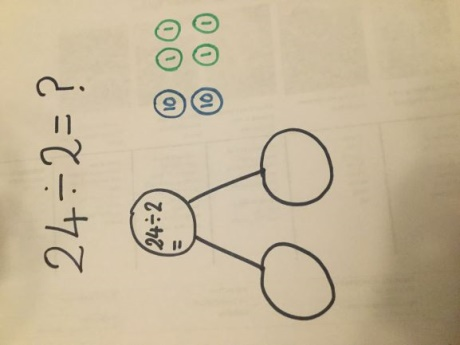 24÷2=?
24÷2
=
10 1 1
10 1 1